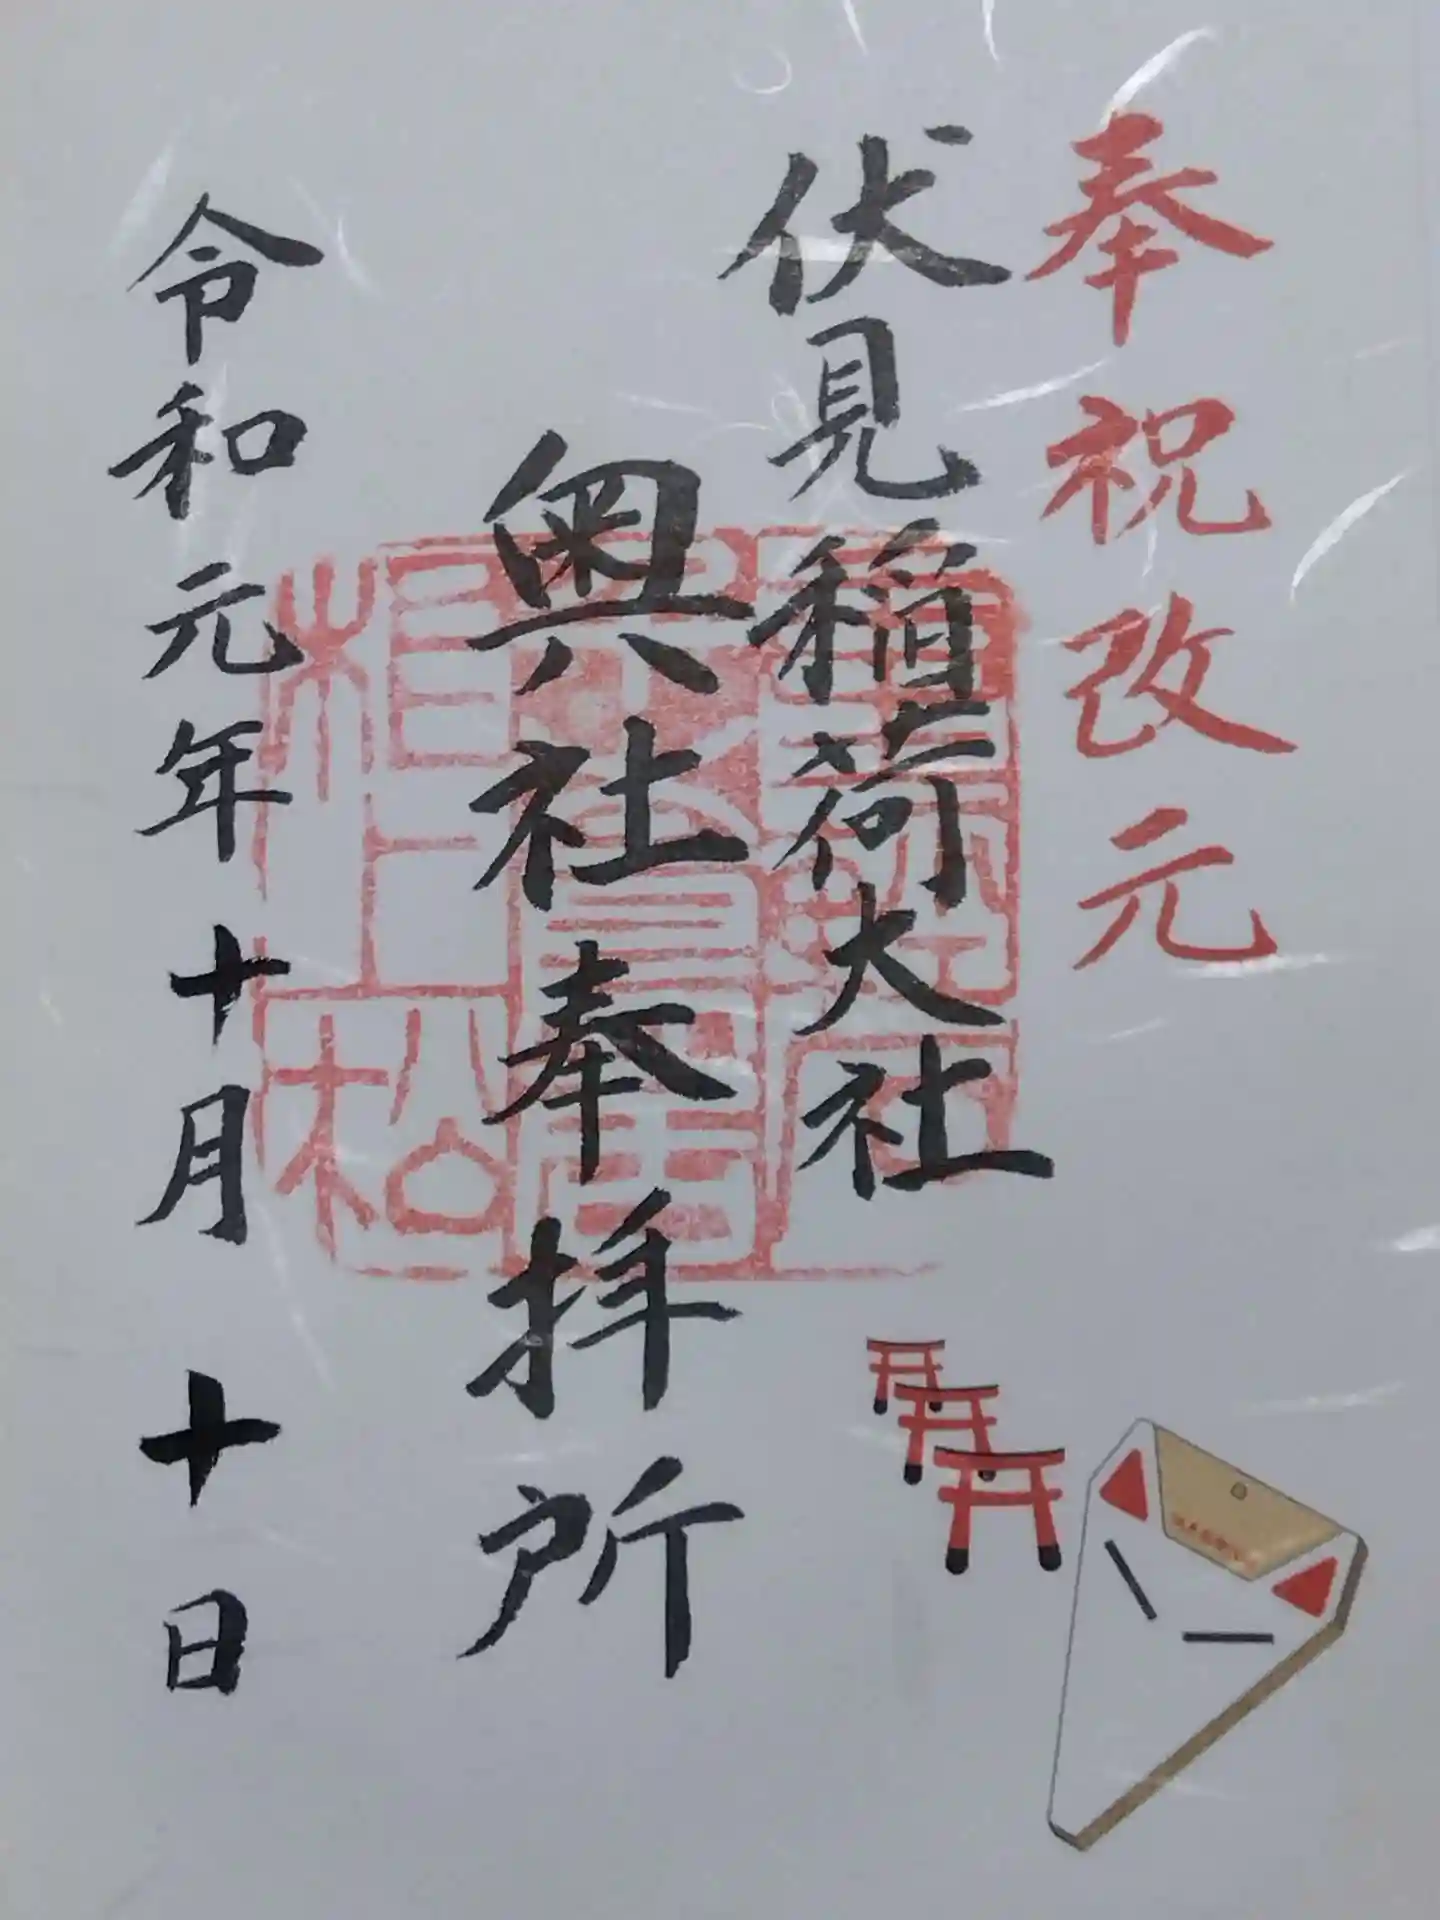 奉祝改元
伏見稲荷大社
奥社奉拝所
令和元年十月十日